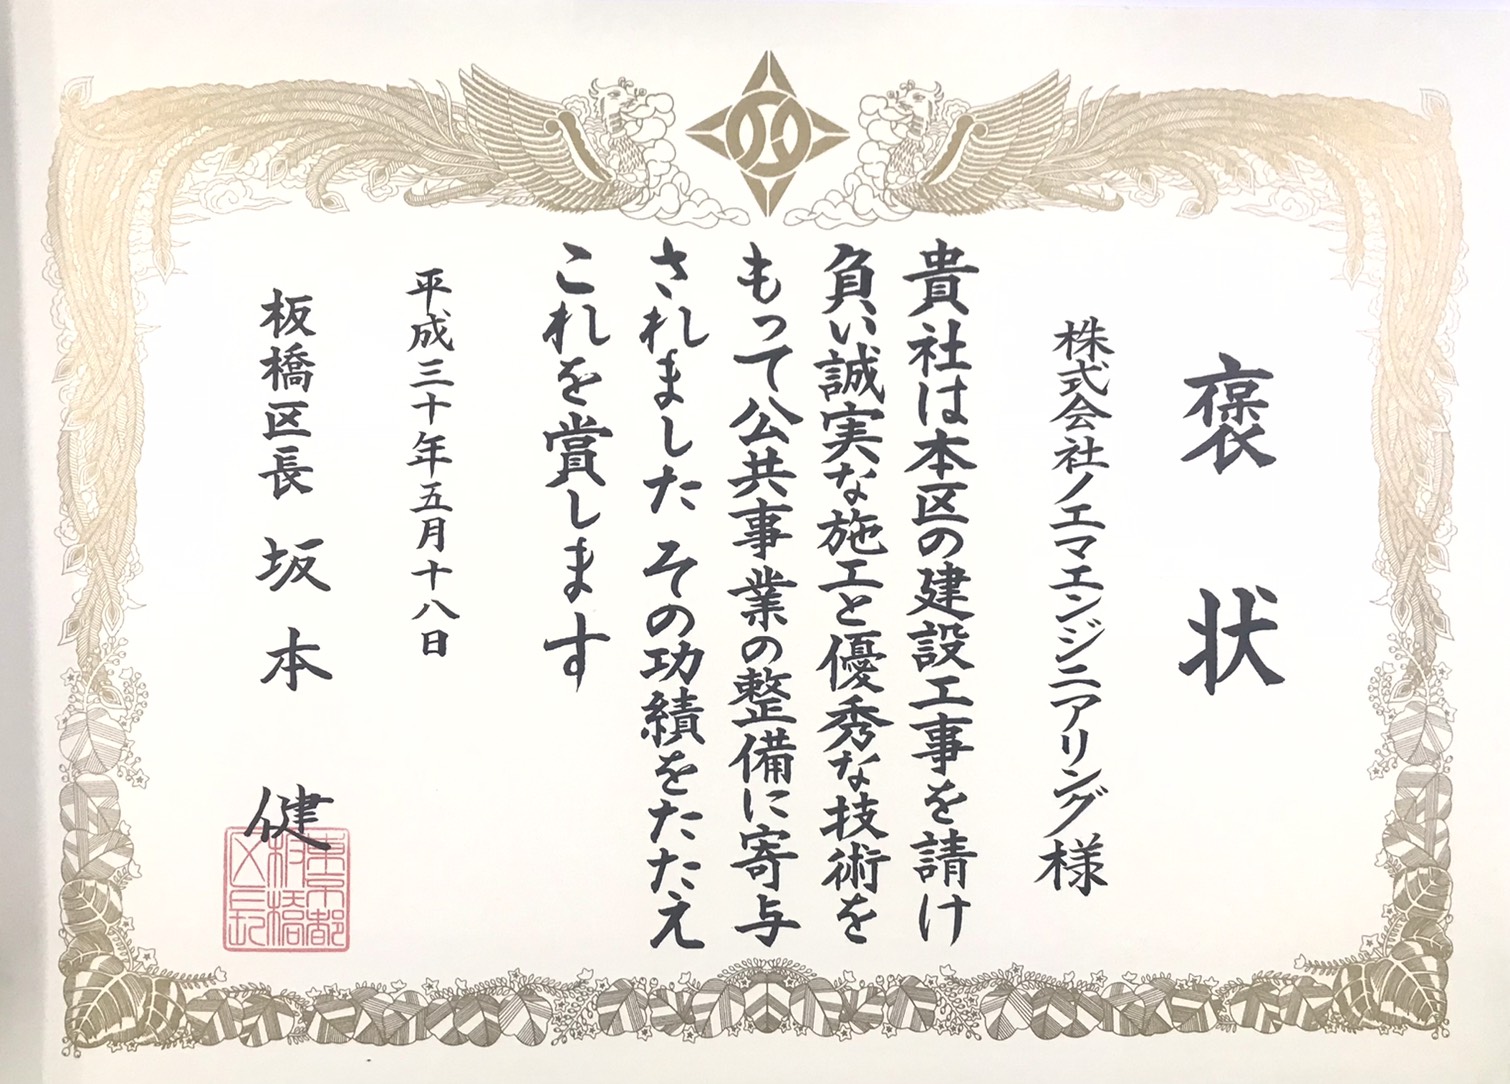 褒状
株式会社ノエマエンジニアリング様
貴社は本区の建設工事を請け
負い誠実な施工と優秀な技術を
もって公共事業の整備に寄与
されました その功績をたたえ
これを賞します
平成三十年五月十八日
板橋区長 坂本 健
東京都
板橋
区長